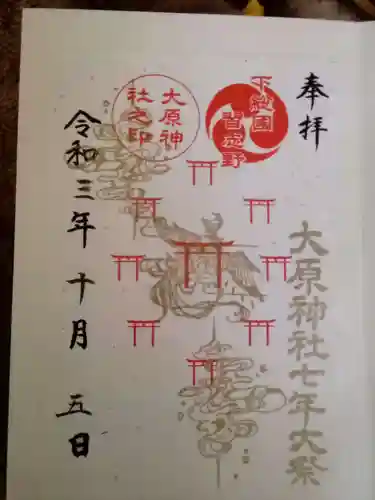 奉拝
下総国
習志野
大原神
社之印
大原神社七年大祭
令和三年十月五日